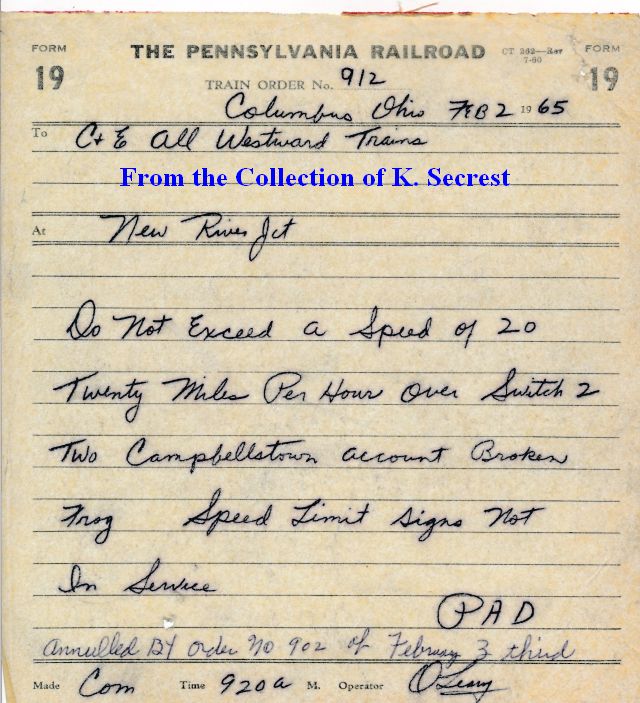 FORM 19 THE PENNSYLVANIA RAILROAD CT 262—Rev 7-60 FORM 19
TRAIN ORDER No. 912
Columbus Ohio FEB 2 1965
To C+E All Westward Trains
From the Collection of K. Secrest
At New River Jct
Do Not Exceed a Speed of 20
Twenty Miles Per Hour Over Switch 2
Two Campbellstown account Broken
Frog Speed Limit Signs Not
In Service
PAD
Annulled BY order No 902 of February 3 third
Made Com Time 920 a M. Operator O'Leary